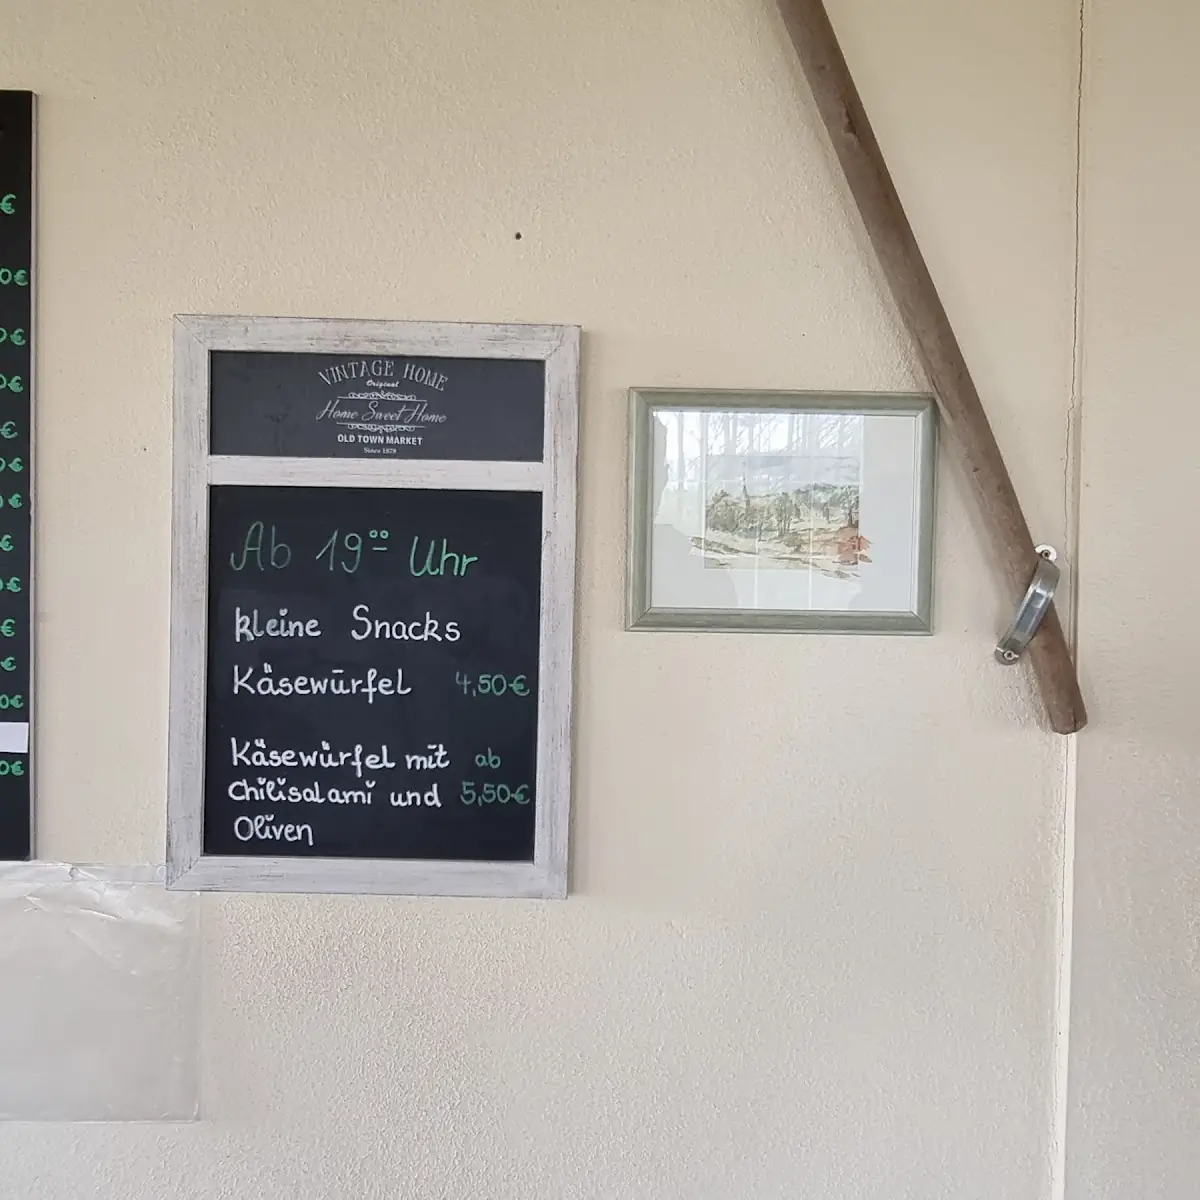 VINTAGE HOME
Original
Home Sweet Home
OLD TOWN MARKET
Since 1878
Ab 19⁰⁰ Uhr
kleine Snacks
Käsewürfel 4,50€
Käsewürfel mit ab
Chilisalami und 5,50€
Oliven
€
0€
0€
0€
€
0€
€
€
0€
€
€
0€
0€